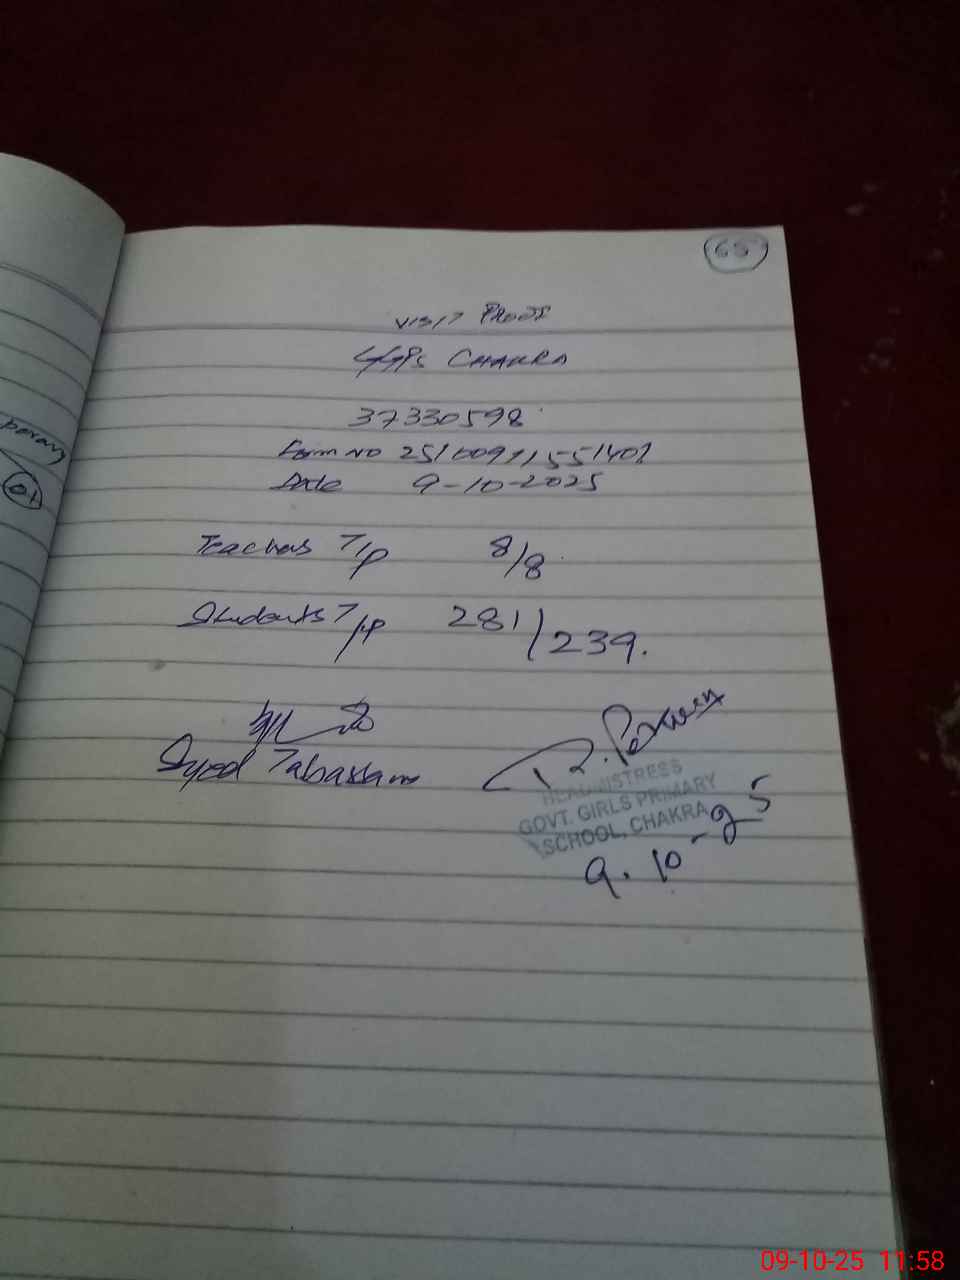 65
VISIT PROOF
GGPS CHAKRA
37330598
Form NO
Date 9-10-2025
Teachers T/P 8/8
Students T/P 281/239.
Syed Tabassam
R. Perveen
HEADMISTRESS
GOVT. GIRLS PRIMARY
SCHOOL, CHAKRA
9.10-25
01
09-10-25 11:58